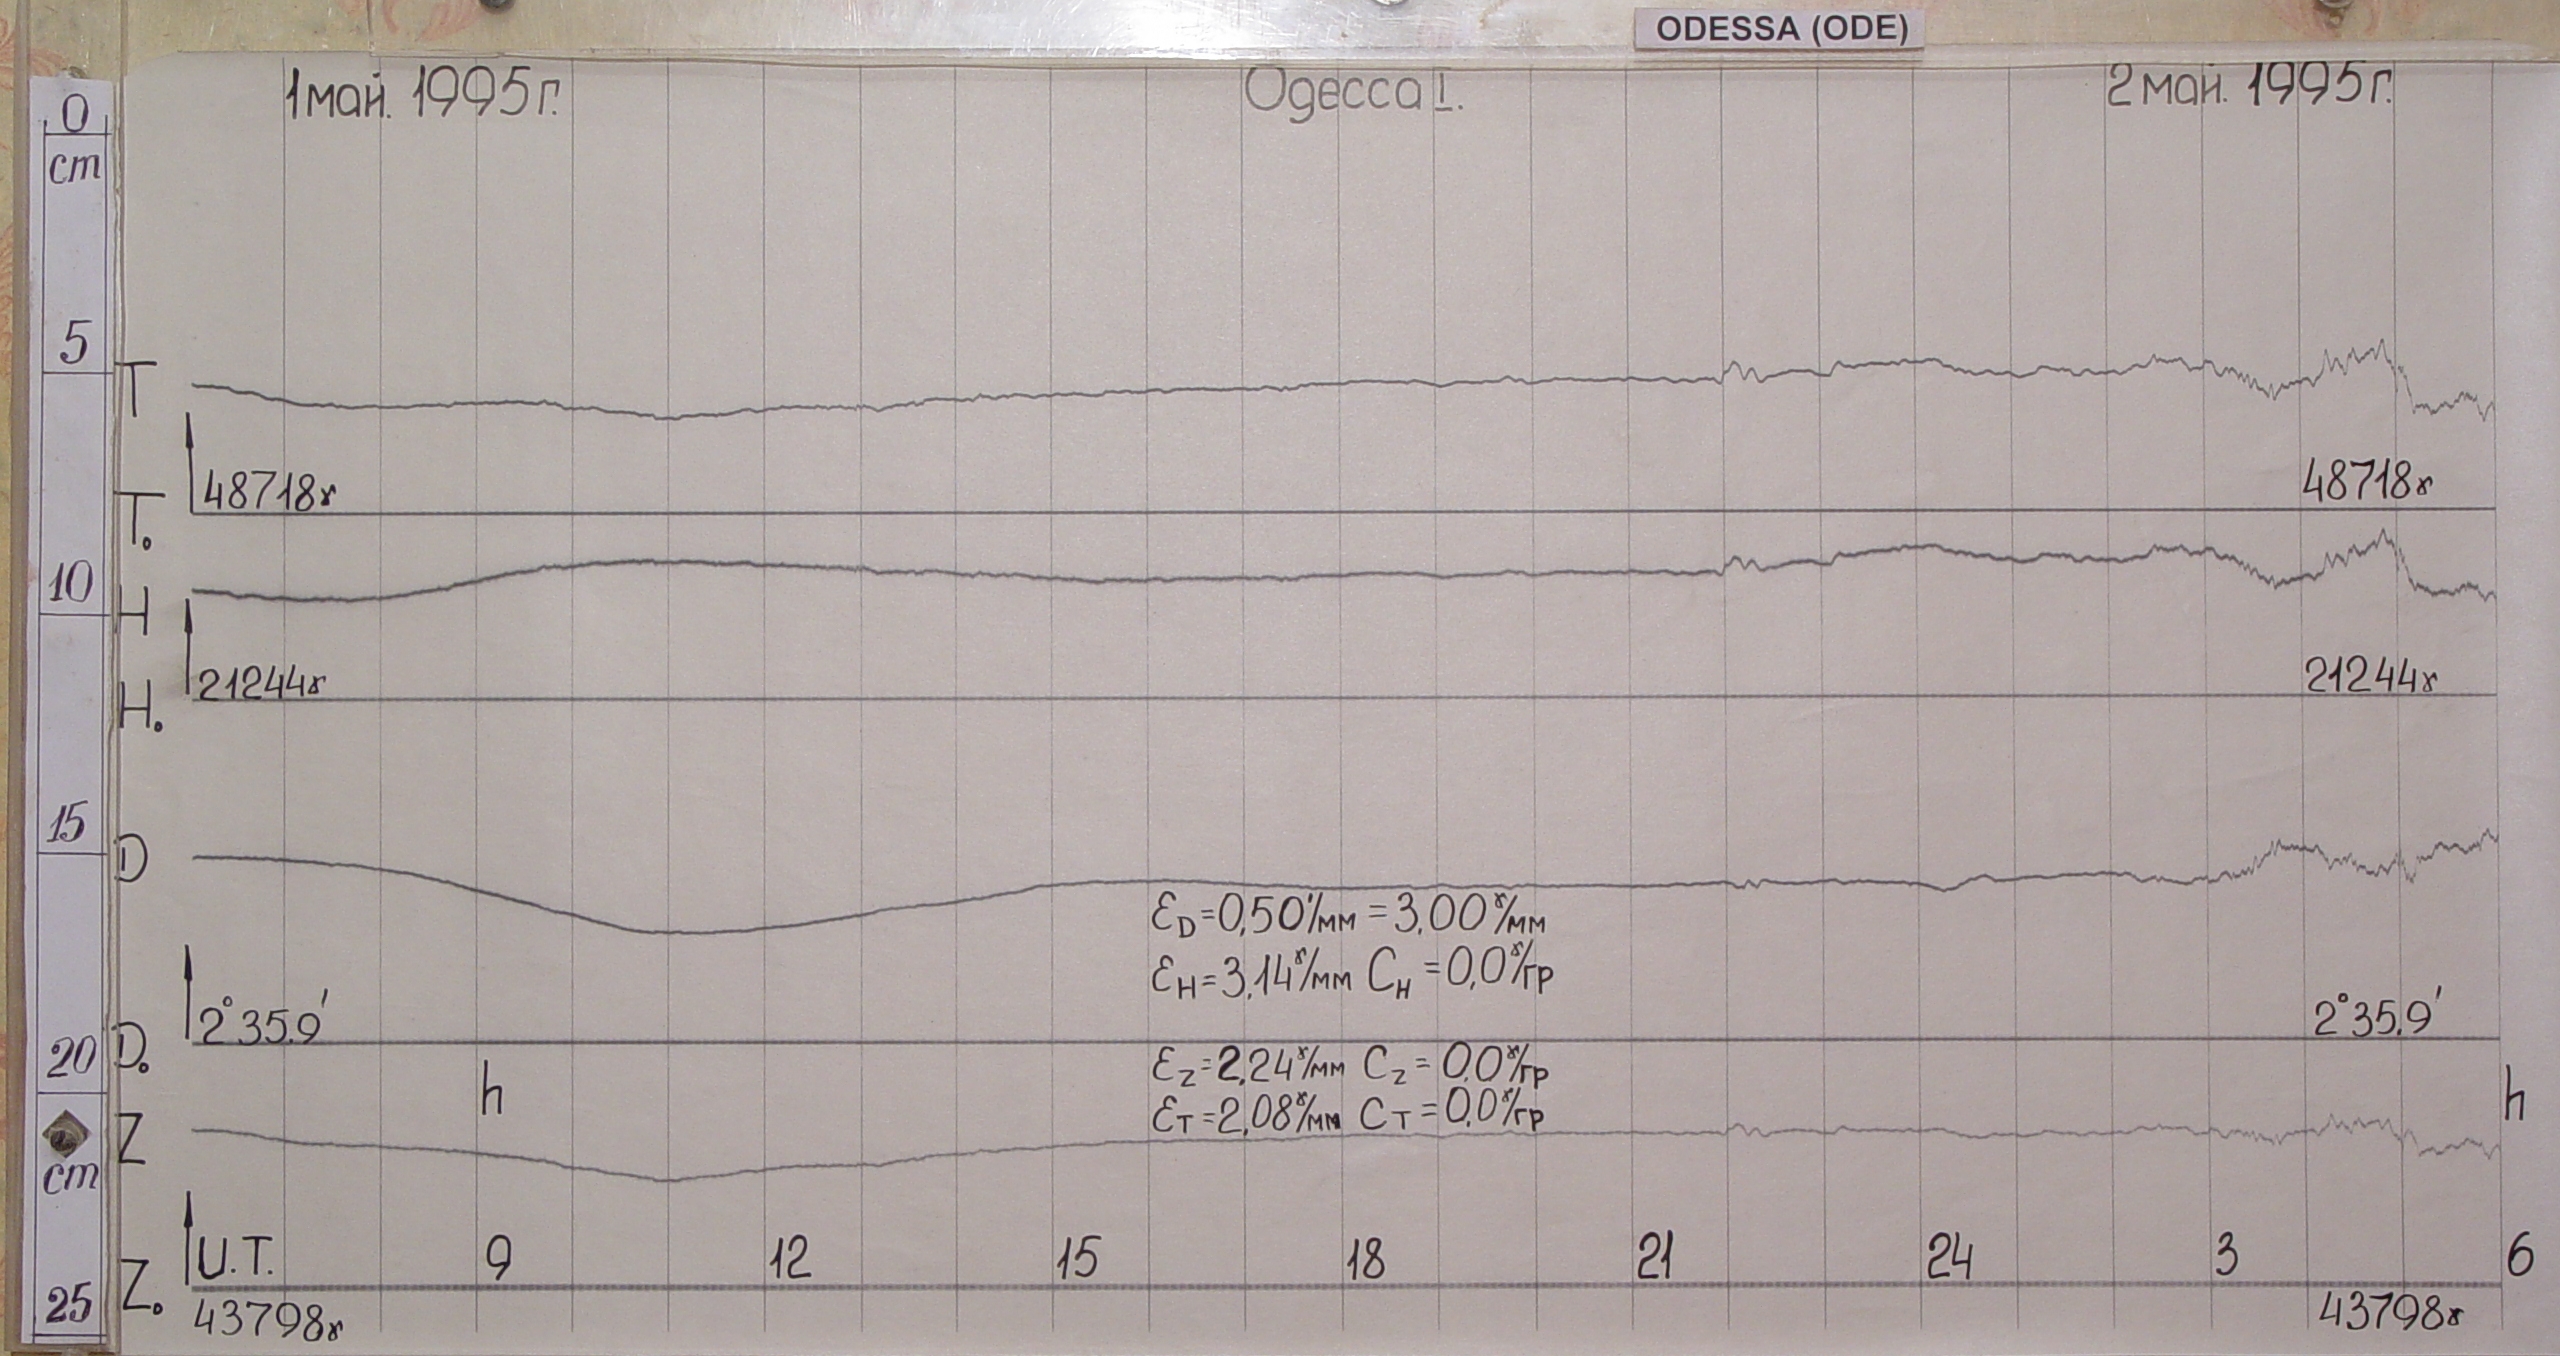 ODESSA (ODE)
1 май. 1995г. Одесса I. 2 май. 1995г.
0
cm
5
T
48718γ 48718γ
T.
10
H
21244γ 21244γ
H.
15
D
ε_D=0,50'/мм = 3,00γ/мм
ε_H=3,14γ/мм C_H=0,0γ/гр
2°35,9' 2°35,9'
20
D.
h h
ε_Z=2,24γ/мм C_Z=0,0γ/гр
ε_T=2,08γ/мм C_T=0,0γ/гр
Z
cm
U.T. 9 12 15 18 21 24 3 6
25
Z.
43798γ 43798γ